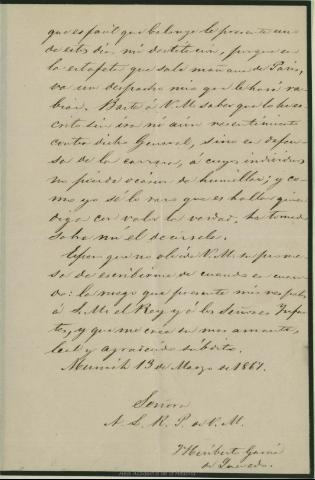 que es facil que Calonge le presente uno
de estos dias mi destitucion, porque en
la estafeta que sale mañana de Paris,
va un despacho mio que le hará ra-
biar. Baste á V.M. saber que lo he es-
crito sin ira ni aún resentimiento
contra dicho General, sino en defen-
sa de la carrera, á cuyos individuos
no pierde ocasion de humillar; y co-
mo yo sé lo raro que es hallar quien
diga con valor la verdad, he tomado
sobre mí el decírsela.
Espero que no olvide V.M. su prome-
sa de escribirme de cuando en cuan-
do: la ruego que presente mis respetos
á S.M. el Rey y á los Señores Infan-
tes, y que me crea su mas amante,
leal y agradecido súbdito.
Munich 13 de Marzo de 1867.
Señora
A. L. R. P. de V.M.
Heriberto Garcia
de Quevedo.